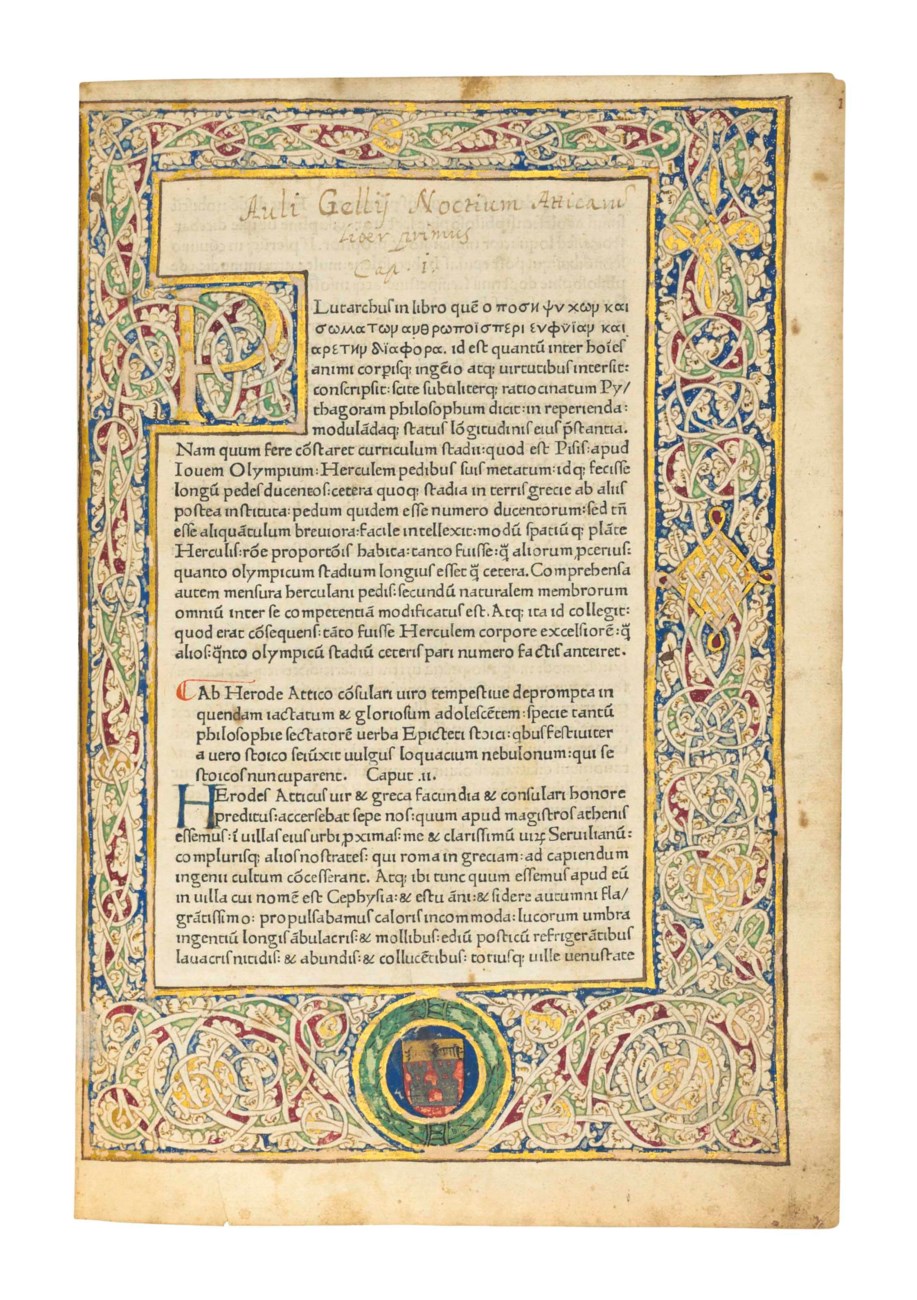 Auli Gellij Noctium Atticarum
liber primus
Cap. I.
PLutarchus in libro quē ο ποση ψυχων και
σωματων ανθρωποισ περι ευφνϊαν και
αρετην διαφορα. id est quantū inter hoīes
animi corpīsq; ingēio atq; uirtutibus intersit:
conscripsit: scite subtiliterq; ratiocinatum Py/
thagoram philosophum dicit: in reperienda:
modulādaq; status lōgitudinis eius p̄stantia.
Nam quum fere cōstaret curriculum stadii: quod est Pisis: apud
Iouem Olympium: Herculem pedibus suis metatum: idq; fecisse
longū pedes ducentos: cetera quoq; stadia in terris grecie ab aliis
postea instituta: pedum quidem esse numero ducentorum: sed tn̄
esse aliquātulum breuiora: facile intellexit: modū spatiūq; plāte
Herculis: rōe proportōis habita: tanto fuisse: q̄ aliorum ꝓcerius:
quanto olympicum stadium longius esset q̄ cetera. Comprehensa
autem mensura herculani pedis: secundū naturalem membrorum
omniū inter se competentiā modificatus est. Atq; ita id collegit:
quod erat cōsequens: tāto fuisse Herculem corpore excelsiorē: q̄
alios: q̄nto olympicū stadiū ceteris pari numero factis anteiret.
Ab Herode Attico cōsulari uiro tempestiue deprompta in
quendam iactatum & gloriosum adolescētem: specie tantū
philosophie sectatorē uerba Epicteti stoici: qbus festiuiter
a uero stoico seiūxit uulgus loquacium nebulonum: qui se
stoicos nuncuparent. Caput .ii.
HErodes Atticus uir & greca facundia & consulari honore
preditus: accersebat sepe nos: quum apud magistros athenis
essemus: ī uillas eius urbi ꝓximas: me & clarissimū uiꝝ Seruilianū:
complurisq; alios nostrates: qui roma in greciam: ad capiendum
ingenii cultum cōcesserant. Atq; ibi tunc quum essemus apud eū
in uilla cui nomē est Cephysia: & estu āni: & sidere autumni fla/
grātissimo: propulsabamus caloris incommoda: lucorum umbra
ingentiū longis ābulacris: & mollibus: ediū posticū refrigerātibus
lauacris nitidis: & abundis: & collucētibus: totiusq; uille uenustate